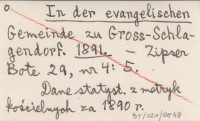 In der evangelischen
Gemeinde zu Gross-Schla-
gendorf. 1891. — Zipser
Bote 29, nr 4: 5.
Dane statyst. z metryk
kościelnych za 1890 r.